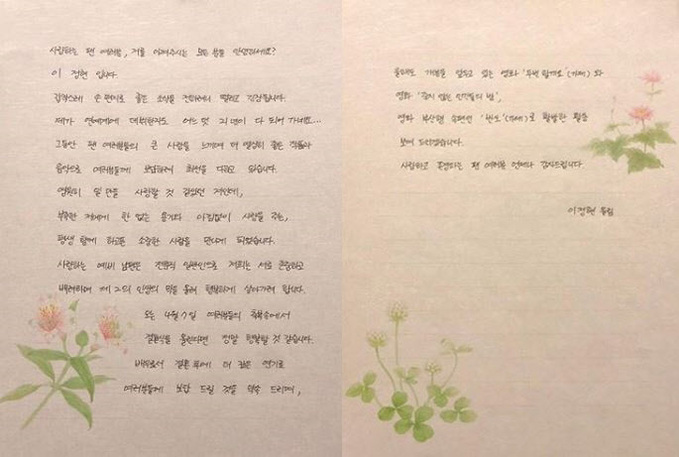 사랑하는 팬 여러분, 저를 아껴주시는 모든 분들 안녕하세요?
이 정현 입니다.
갑작스레 손 편지로 좋은 소식을 전하려니 떨리고 긴장됩니다.
제가 연예계에 데뷔한지도 어느덧 21년이 다 되어 가네요...
그동안 팬 여러분들의 큰 사랑을 느끼며 더 열심히 좋은 작품과
음악으로 여러분들께 보답하려 최선을 다하고 있습니다.
영원히 일 만을 사랑할 것 같았던 저인데,
부족한 저에게 한 없는 용기와 아낌없이 사랑을 주는,
평생 함께 하고픈 소중한 사람을 만나게 되었습니다.
사랑하는 예비 남편은 전문직 일반인으로 저희는 서로 존중하고
배려하며 제 2의 인생의 막을 올려 행복하게 살아가려 합니다.
오는 4월 7일 여러분들의 축복속에서
결혼식을 올린다면 정말 행복할 것 같습니다.
배우로서 결혼 후에 더 깊은 연기로
여러분들께 보답 드릴 것을 약속 드리며,
올해도 개봉을 앞두고 있는 영화 '두번 할까요'(가제) 와
영화 '죽지 않는 인간들의 밤',
영화 부산행 속편인 '반도'(가제)로 활발한 활동
보여 드리겠습니다.
사랑하고 존경하는 팬 여러분 언제나 감사드립니다.
이정현 올림